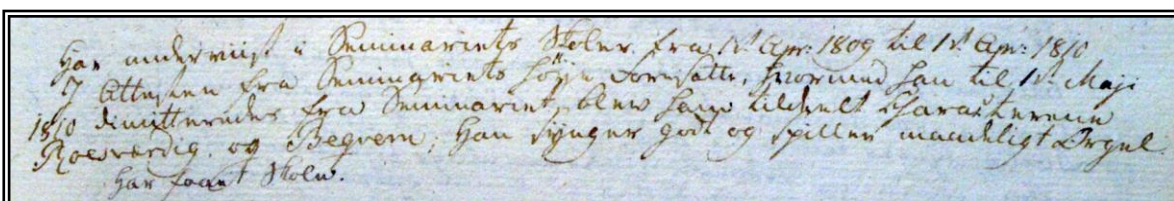 Har underviist i Seminariets Skoler fra 1st Apr: 1809 til 1st Apr: 1810
I Attesten fra Seminariets Høje Foresatte, hvormed han til 1st Maji
1810 dimitteredes fra Seminariet, blev ham tildeelt Characterene
Roesværdig og Beqvem; Han synger godt og spiller maadeligt Orgel.
har faaet Skole.